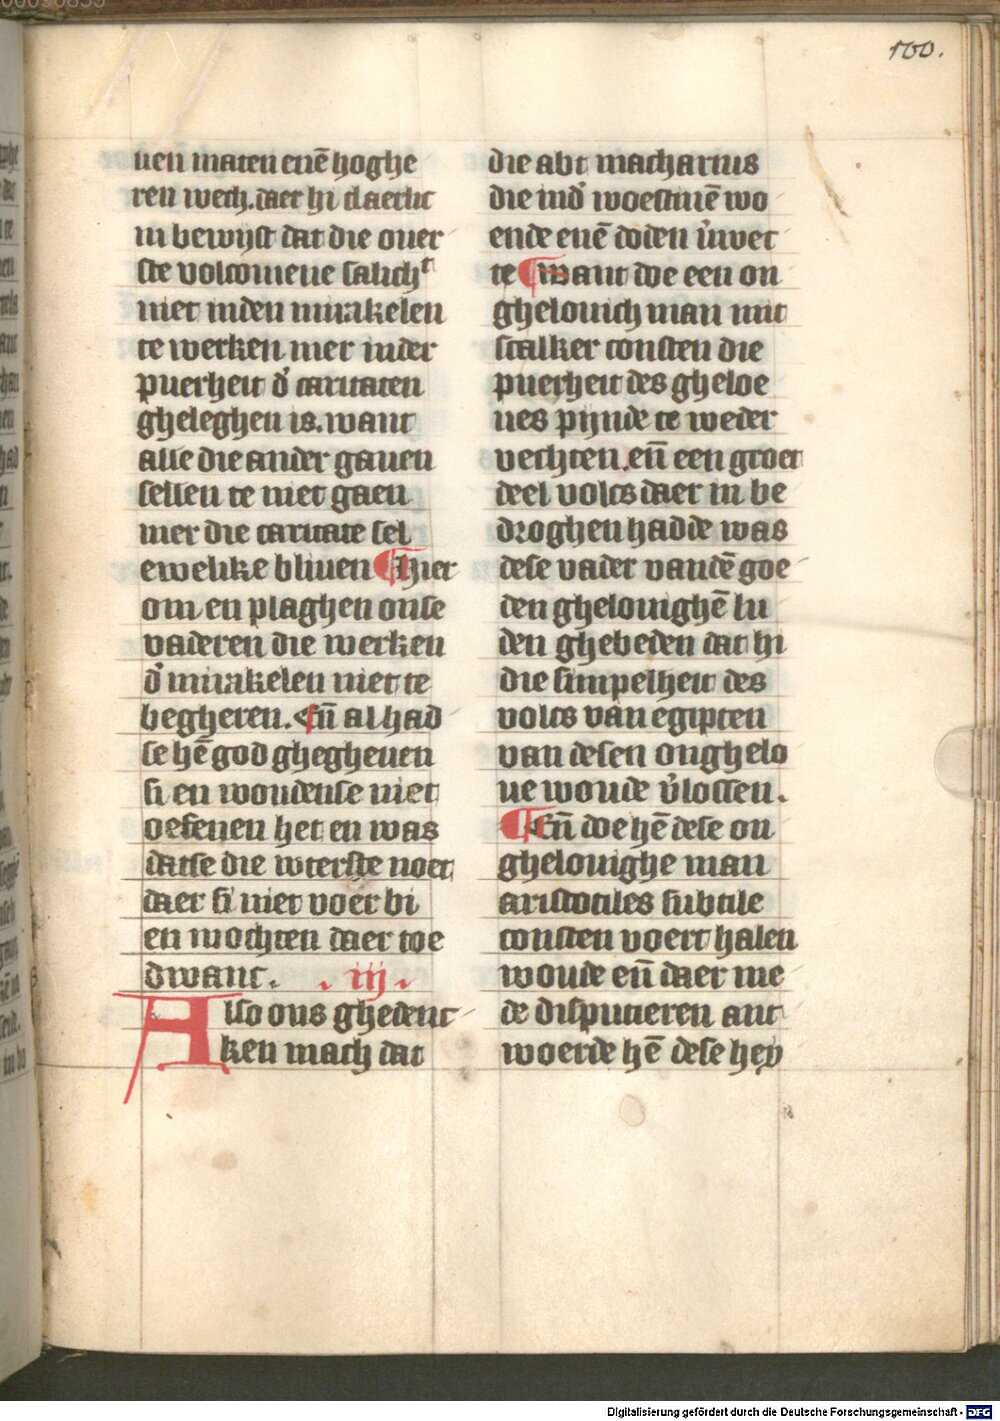 100.
uen maten enē hoghe
ren wech. daer hi claerlic
in bewijst dat die ouer
ste volcomene salichᵗ
niet inden mirakelen
te werken mer inder
puerheit d' caritaten
gheleghen is. want
alle die ander gauen
sellen te niet gaen
mer die caritate sel
ewelike bliuen ¶ Hier
om en plaghen onse
vaderen die werken
d' mirakelen niet te
begheren. Eñ al had
se hē god ghegheuen
si en woudense niet
oefenen het en was
datse die wterste noet
daer si niet voer bi
en mochten daer toe
dwanc. . iij .
Also ons ghedenc
ken mach dat
die abt macharius
die ind' woestinē wo
ende enē doden v'wec
te ¶ Want doe een on
ghelouich man mit
scalker consten die
puerheit des gheloe
ues pijnde te weder
vechten. eñ een groet
deel volcs daer in be
droghen hadde was
dese vader vandē goe
den ghelouighē lu
den ghebeden dat hi
die simpelheit des
volcs van egipten
van desen onghelo
ue woude v'lossen.
¶ Eñ doe hē dese on
ghelouighe man
aristotiles subtile
consten voert halen
woude eñ daer me
de disputieren ant
woerde hē dese hey
Digitalisierung gefördert durch die Deutsche Forschungsgemeinschaft - DFG